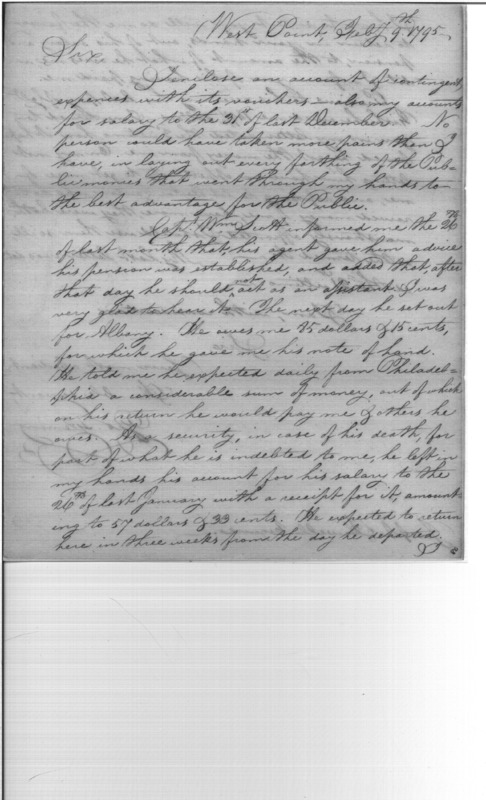 West Point, Feby 9th 1795.
Sir,
I inclose an account of contingent
expences with its vouchers – also my accounts
for salary to the 31 of last December. No
person could have taken more pains than I
have, in laying out every farthing of the Pub-
lic monies that went through my hands to
the best advantage for the Public.
Capt. Wm Scott informed me the 26th
of last month that his agent gave him advice
his pension was established, and added that, after
that day he should not act as an assistant. I was
very glad to hear it. The next day he set out
for Albany. He owes me 35 dollars & 15 cents,
for which he gave me his note of hand.
He told me he expected daily from Philadel-
phia a considerable sum of money, out of which
on his return he would pay me & others he
owes. As a security, in case of his death, for
part of what he is indebted to me, he left in
my hands his account for his salary to the
26th of last January with a receipt for it, amount-
ing to 57 dollars & 33 cents. He expected to return
here in three weeks from the day he departed.